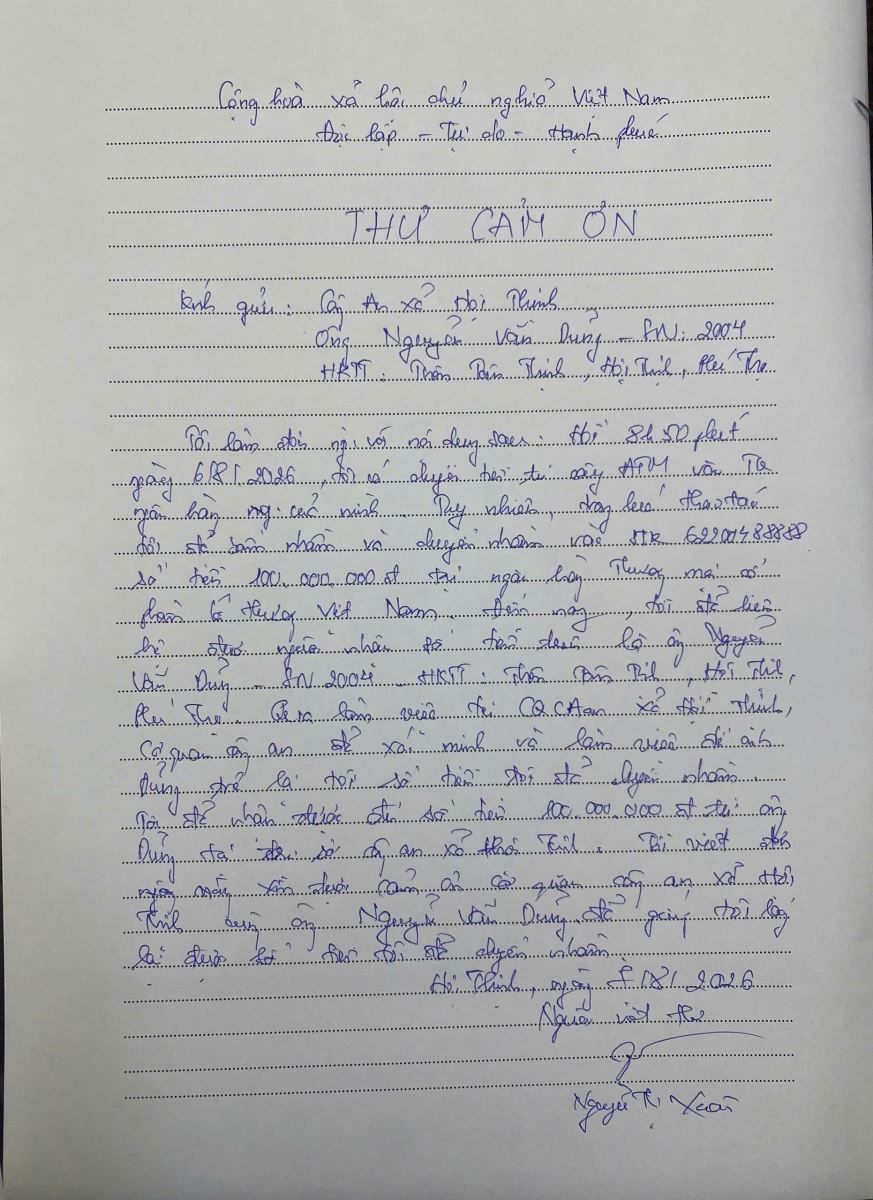 Cộng hoà xã hội chủ nghĩa Việt Nam
Độc lập - Tự do - Hạnh phúc
THƯ CẢM ƠN
Kính gửi: Công An xã Hội Thịnh
Ông Nguyễn Văn Dũng - SN: 2004
HKTT: Thôn Tân Thịnh, Hội Thịnh, Phú Thọ
Tôi làm đơn này với nội dung sau: Hồi 8h50 phút
ngày 6/8/2026, tôi có chuyển tiền tại cây ATM
ngân hàng của mình. Tuy nhiên, trong lúc thao tác
tôi đã bấm nhầm và chuyển nhầm vào STK 62200488888
số tiền 100.000.000đ tại ngân hàng Thương mại cổ
phần Việt Nam. Đến nay, tôi đã liên
hệ được người nhận số tiền trên là ông Nguyễn
Văn Dũng - SN 2004 - HKTT: Thôn, Hội Thịnh,
Phú Thọ. Qua làm việc tại CQCAan xã Hội Thịnh,
Cơ quan công an đã xác minh và làm việc để anh
Dũng trả lại tôi số tiền tôi đã chuyển nhầm.
Tôi đã nhận được đủ số tiền 100.000.000đ từ ông
Dũng tại trụ sở công an xã Hội Thịnh. Tôi viết đơn
này mong cảm ơn cơ quan công an xã Hội
Thịnh cùng ông Nguyễn Văn Dũng đã giúp tôi lấy
lại được số tiền tôi đã chuyển nhầm.
Hội Thịnh, ngày /8/2026
Người viết thư
Nguyễn Thị Xuân